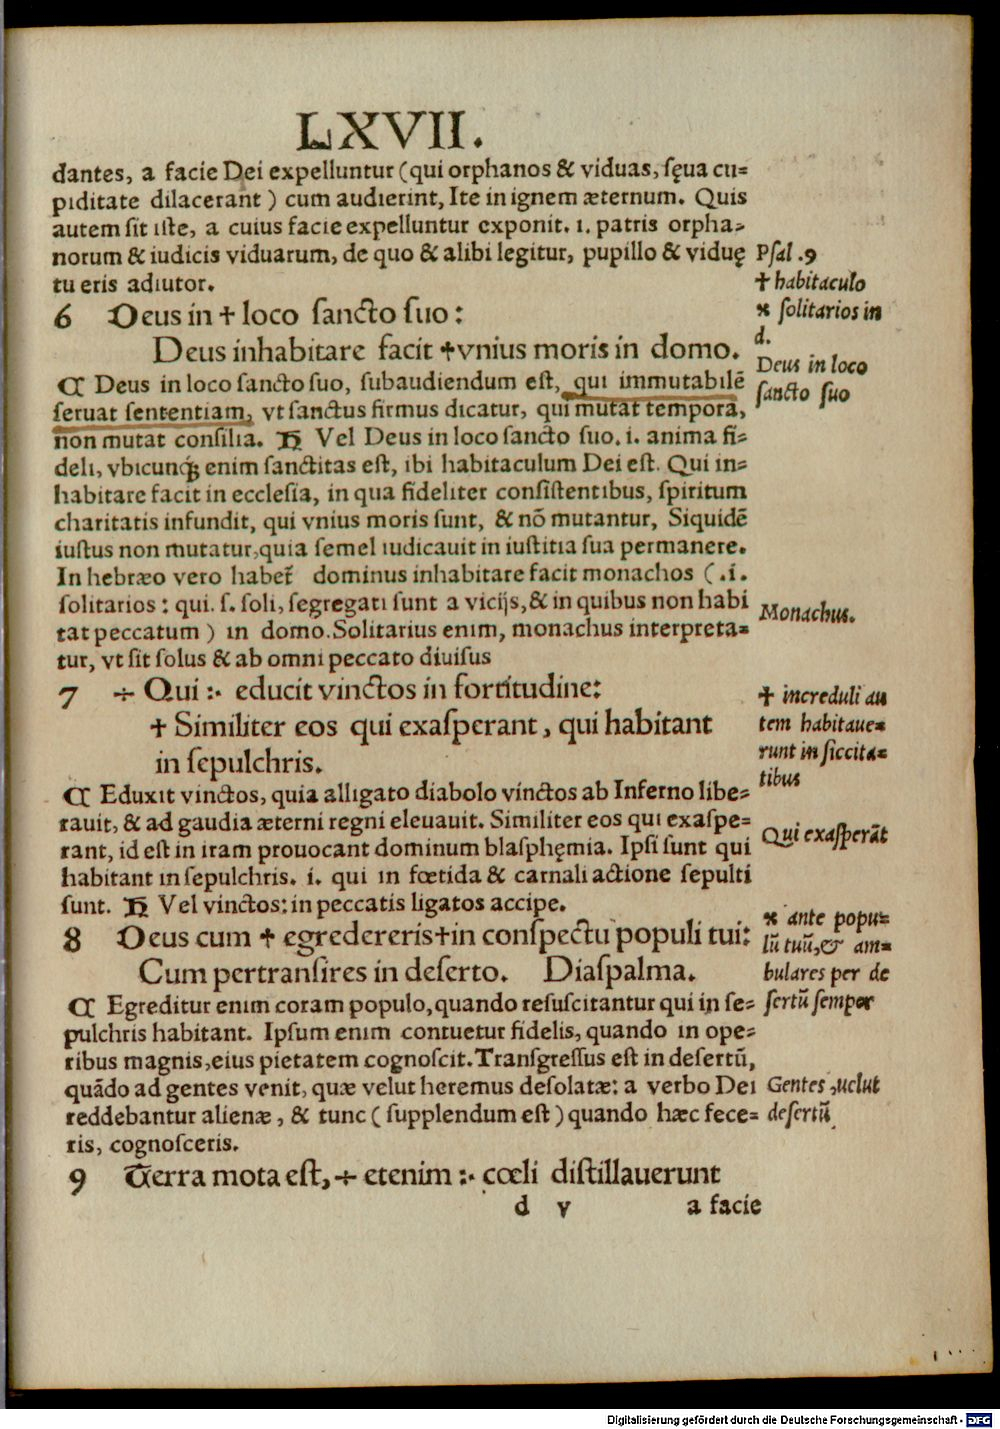 LXVII.
dantes, a facie Dei expelluntur (qui orphanos & viduas, sęua cu=
piditate dilacerant) cum audierint, Ite in ignem æternum. Quis
autem sit iste, a cuius facie expelluntur exponit. i. patris orpha=
norum & iudicis viduarum, de quo & alibi legitur, pupillo & viduę
tu eris adiutor.
Psal .9
6 Deus in ✝ loco sancto suo:
Deus inhabitare facit ✝vnius moris in domo.
✝ habitaculo
⁎ solitarios in
d.
¶ Deus in loco sancto suo, subaudiendum est, qui immutabilē
seruat sententiam, vt sanctus firmus dicatur, qui mutat tempora,
non mutat consilia. Ħ Vel Deus in loco sancto suo. i. anima fi=
deli, vbicunq; enim sanctitas est, ibi habitaculum Dei est. Qui in=
habitare facit in ecclesia, in qua fideliter consistentibus, spiritum
charitatis infundit, qui vnius moris sunt, & nō mutantur, Siquidē
iustus non mutatur, quia semel iudicauit in iustitia sua permanere.
In hebræo vero habet̃ dominus inhabitare facit monachos (.i.
solitarios: qui. s. soli, segregati sunt a vicijs, & in quibus non habi
tat peccatum) in domo. Solitarius enim, monachus interpreta=
tur, vt sit solus & ab omni peccato diuisus
Deus in loco
sancto suo
Monachus.
7 ÷ Qui :· educit vinctos in fortitudine:
✝ Similiter eos qui exasperant, qui habitant
in sepulchris.
✝ increduli au
tem habitaue=
runt in siccita=
tibus
¶ Eduxit vinctos, quia alligato diabolo vinctos ab Inferno libe=
rauit, & ad gaudia æterni regni eleuauit. Similiter eos qui exaspe=
rant, id est in iram prouocant dominum blasphęmia. Ipsi sunt qui
habitant in sepulchris. i. qui in fœtida & carnali actione sepulti
sunt. Ħ Vel vinctos: in peccatis ligatos accipe.
Qui exasperāt
8 Deus cum ✝ egredereris✝in conspectu populi tui:
Cum pertransires in deserto. Diaspalma.
⁎ ante popu=
lū tuū, & am=
bulares per de
sertū semper
¶ Egreditur enim coram populo, quando resuscitantur qui in se=
pulchris habitant. Ipsum enim contuetur fidelis, quando in ope=
ribus magnis, eius pietatem cognoscit. Transgressus est in desertū,
quādo ad gentes venit, quæ velut heremus desolatæ: a verbo Dei
reddebantur alienæ, & tunc (supplendum est) quando hæc fece=
ris, cognosceris.
Gentes, uelut
desertū.
9 Terra mota est, ÷ etenim :· cœli distillauerunt
d v a facie
Digitalisierung gefördert durch die Deutsche Forschungsgemeinschaft - DFG